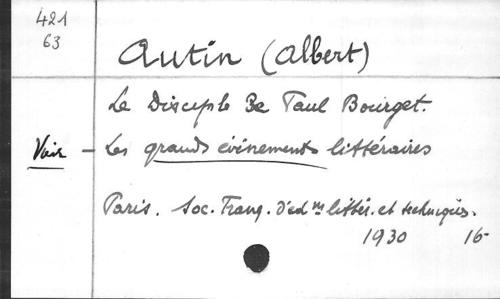 421
63
Autin (Albert)
Le Disciple de Paul Bourget.
Voir - Les grands événements littéraires
Paris. Soc. Franç. d'éd ns littér. et techniques.
1930 16-